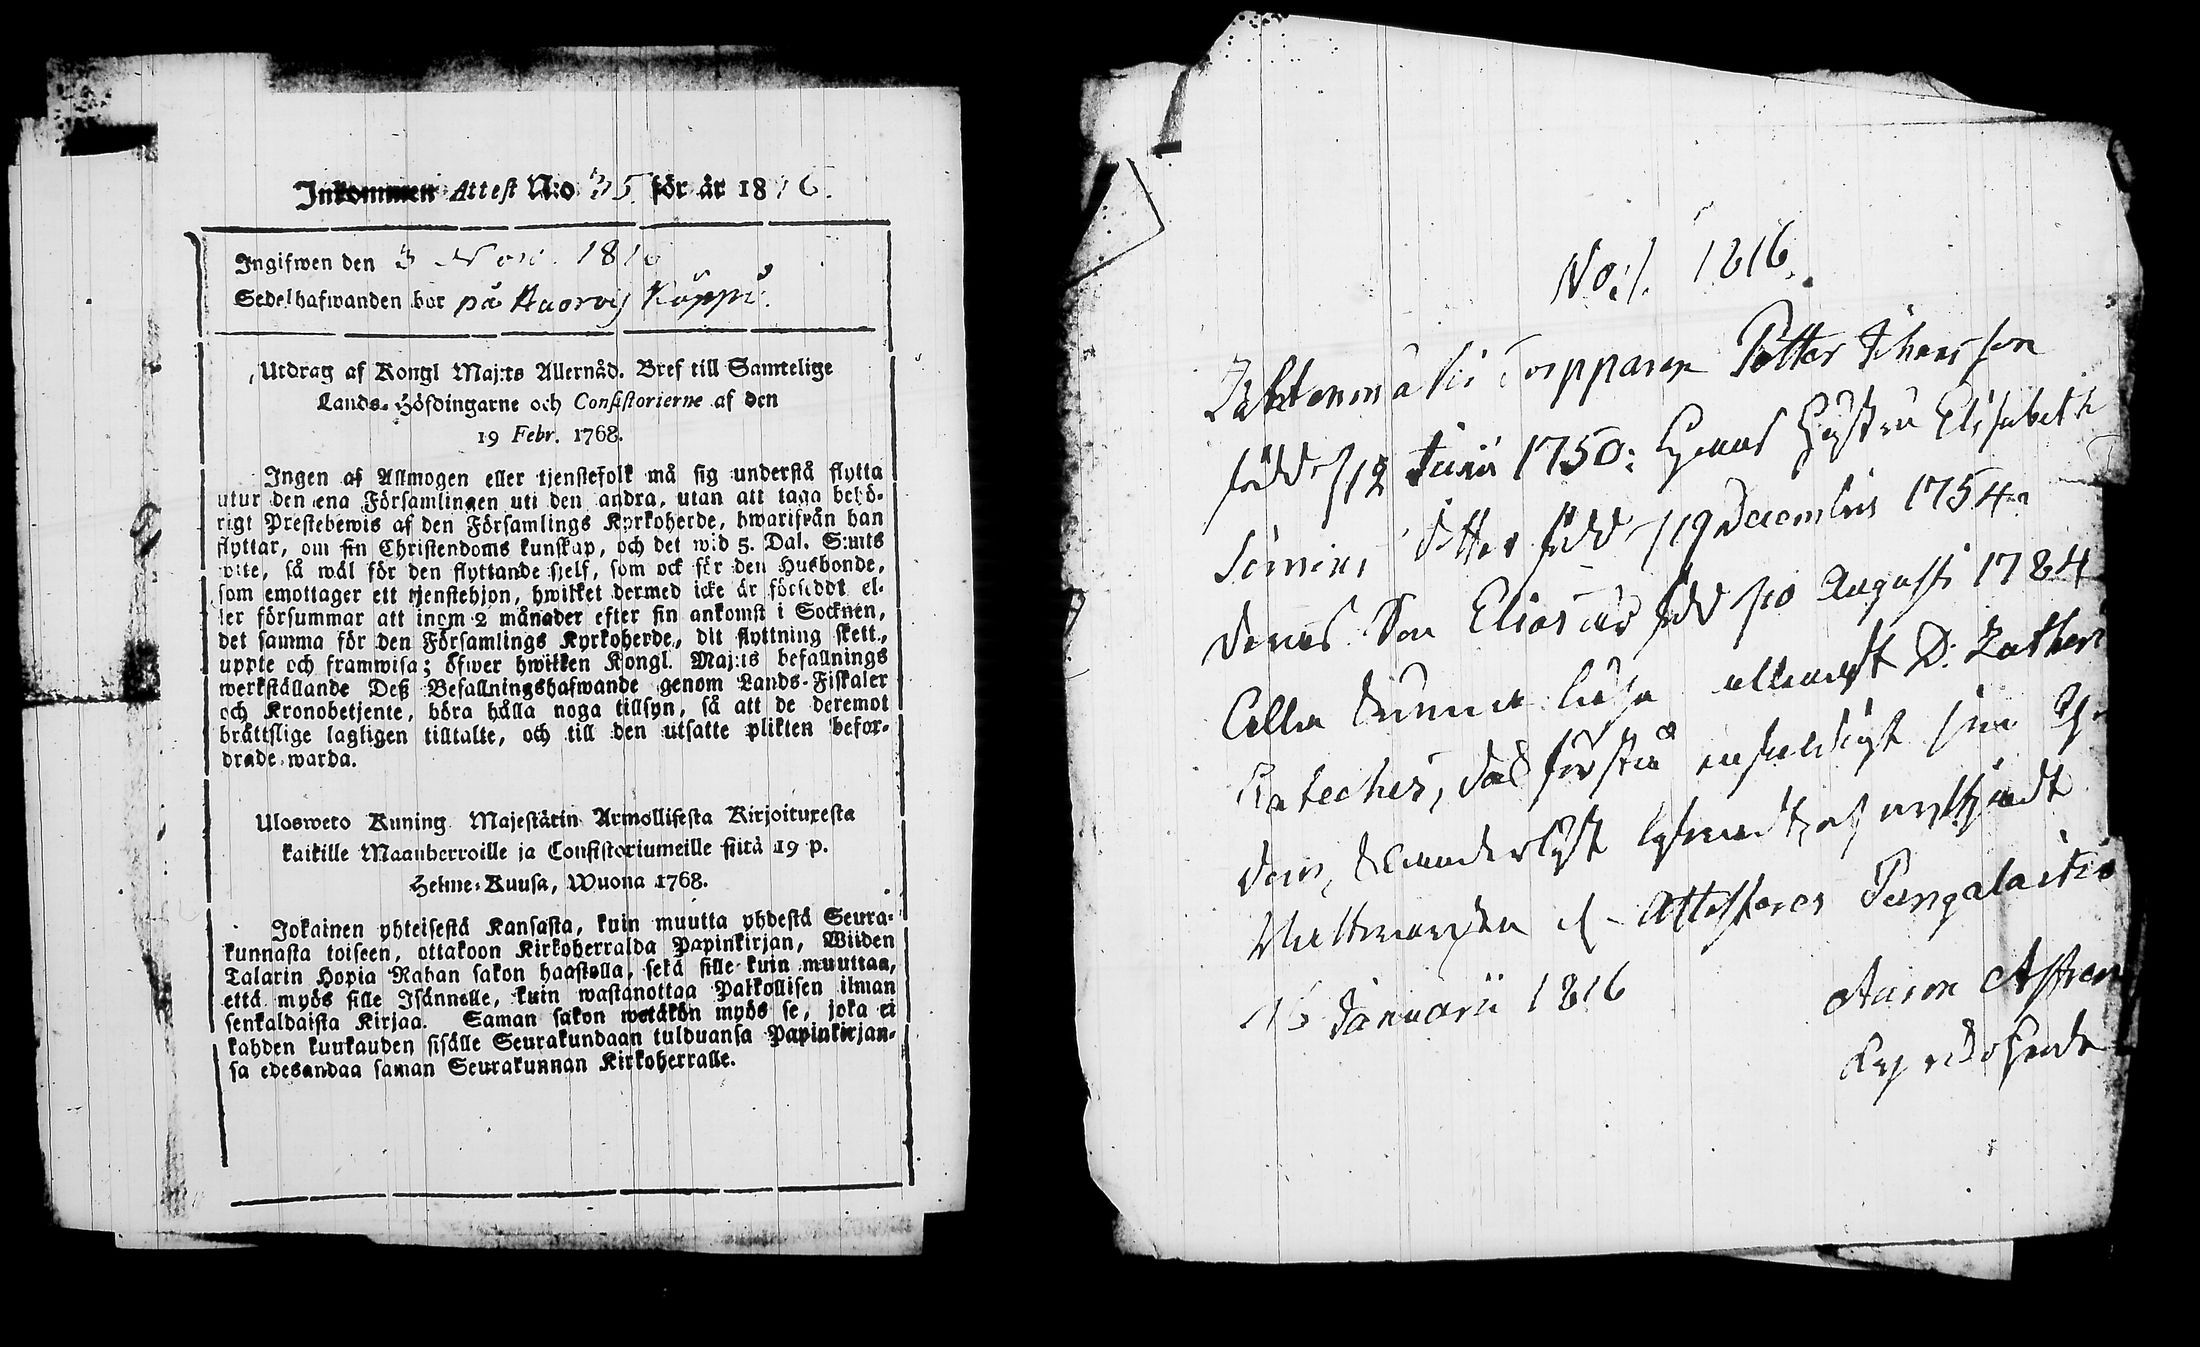 Inkommen Attest N:o 35. för år 1816.
Ingifwen den 3 Nov. 1816
Sedelhafwanden bor på Haorois Käppi.
Utdrag af Kongl Maj:ts Allernåd. Bref till Samtelige
Lands-Höfdingarne och Consistorierne af den
19 Febr. 1768.
Ingen af Allmogen eller tjenstefolk må sig understå flytta
utur den ena Församlingen uti den andra, utan att taga behö-
rigt Prestebewis af den Församlings Kyrkoherde, hwarifrån han
flyttar, om sin Christendoms kunskap, och det wid 5. Dal. S:mts
wite, så wäl för den flyttande sjelf, som ock för den Husbonde,
som emottager ett tjenstehjon, hwilket dermed icke är försedt el-
ler försummar att inom 2 månader efter sin ankomst i Socknen,
det samma för den Församlings Kyrkoherde, dit flyttning skett,
uppte och framwisa; öfwer hwilken Kongl. Maj:ts befallnings
werkställande Deß Befallningshafwande genom Lands-Fiskaler
och Kronobetjente, böra hålla noga tillsyn, så att de deremot
bråttslige lagligen tilltalte, och till den utsatte plikten befor-
drade warda.
Ulosweto Kuning Majestätin Armollisesta Kirjoituxesta
kaikille Maanherroille ja Consistoriumeille siitä 19 p.
Helme-Kuusa, Wuona 1768.
Jokainen yhteisestä Kansasta, kuin muutta yhdestä Seura-
kunnasta toiseen, ottakoon Kirkoherralda Papinkirjan, Wiiden
Talarin Hopia Rahan sakon haastolla, sekä sille kuin muuttaa,
että myös sille Isännelle, kuin wastanottaa Palkollisen ilman
senkaldaista Kirjaa. Saman sakon wetäkön myös se, joka ei
kahden kuukauden sisälle Seurakundaan tulduansa Papinkirjan-
sa edesandaa saman Seurakunnan Kirkoherralle.
No: 1. 1816.
Torpparen Petter Johansson
född 12 Junii 1750: Hustru Elisabeth
Simons dotter född 19 Decembris 1754.
deras Son Elias är född 10 Augusti 1784
Alla kunna läsa D: Lutheri
Kateches, förstå enfaldigt sin
Nattwarden Attesteras Pungalaitio
16 Januarii 1816
Aaron
Kyrkoherde